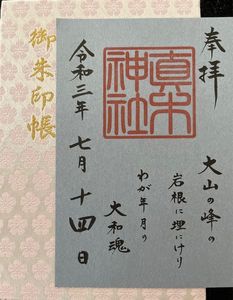 奉拝
大山の峰の
岩根に埋にけり
わが年月の
大和魂
真木神社
令和三年 七月 十四日
御朱印帳